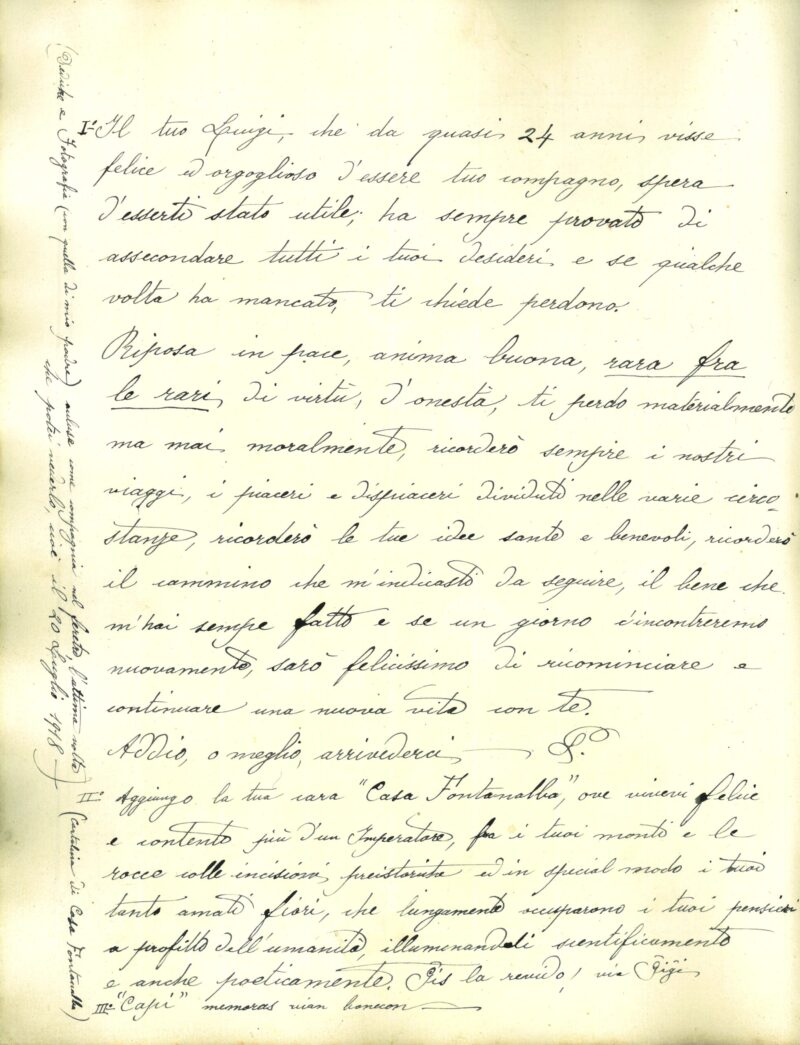 I° Il tuo Luigi, che da quasi 24 anni visse
felice ed orgoglioso d'essere tuo compagno, spera
d'esserti stato utile; ha sempre provato di
assecondare tutti i tuoi desideri e se qualche
volta ha mancato, ti chiede perdono.
Riposa in pace, anima buona, rara fra
le rari, di virtù, d'onestà, ti perdo materialmente
ma mai moralmente, ricorderò sempre i nostri
viaggi, i piaceri e dispiaceri dividuti nelle varie circo-
stanze, ricorderò le tue idee sante e benevoli, ricorderò
il cammino che m'indicasti da seguire, il bene che
m'hai sempre fatto e se un giorno c'incontreremo
nuovamente, sarò felicissimo di ricominciare e
continuare una nuova vita con te.
Addio, o meglio, arrivederci — L.
II° Aggiungo la tua cara "Casa Fontanalba", ove vivevi felice
e contento più d'un Imperatore, fra i tuoi monti e le
rocce colle incisioni preistoriche ed in special modo i tuoi
tanto amati fiori, che lungamente occuparono i tuoi pensieri
a profitto dell'umanità, illuminandoli scientificamente
e anche poeticamente. Ĝis la revido! via Gigi
III° "Capi" memoras vian bonecon —
(Dediche e Fotografie (con quella di mio padre) chiuse come compagnia nel feretro l'ultima volta
che potei vederlo, cioè il 20 Luglio 1918 —)
(Cartolina di Casa Fontanalba)